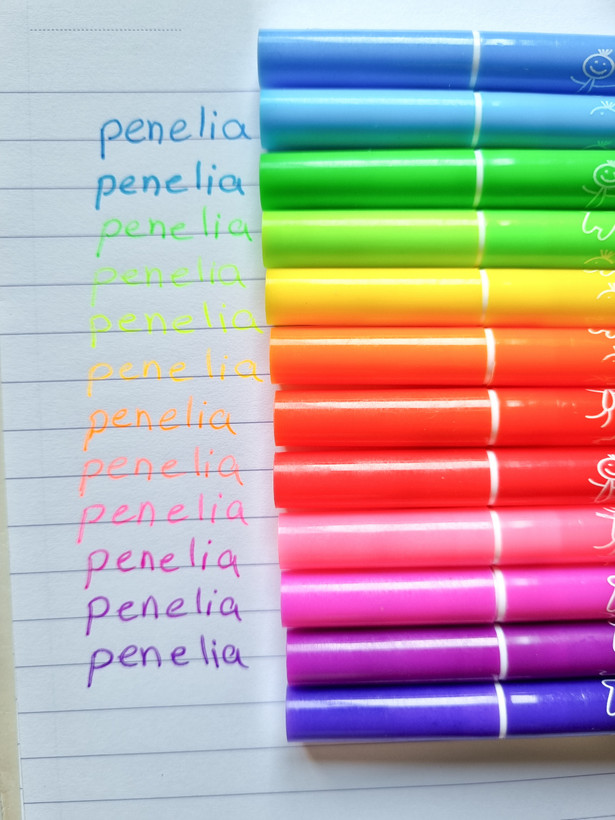 penelia
penelia
penelia
penelia
penelia
penelia
penelia
penelia
penelia
penelia
penelia
penelia